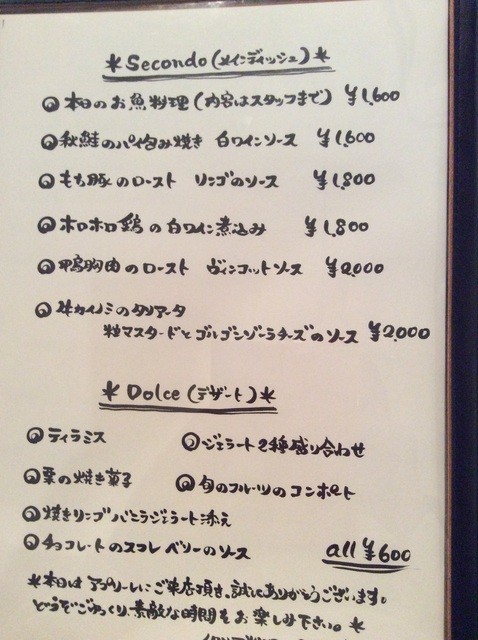 *Secondo(メインディッシュ)*
◎本日のお魚料理(内容はスタッフまで) ¥1,600
◎秋鮭のパイ包み焼き 白ワインソース ¥1,600
◎もち豚のロースト リンゴのソース ¥1,800
◎ホロホロ鶏の白ワイン煮込み ¥1,800
◎鴨胸肉のロースト ヴィンコットソース ¥2,000
◎牛カイノミのタリアータ
粒マスタードとゴルゴンゾーラチーズのソース ¥2,000
*Dolce(デザート)*
◎ティラミス ◎ジェラート2種盛り合わせ
◎栗の焼き菓子 ◎旬のフルーツのコンポート
◎焼きリンゴバニラジェラート添え
◎チョコレートのスフレ ベリーのソース all ¥600
*本日はアプリーレにご来店頂き、誠にありがとうございます。
どうぞごゆっくり、素敵な時間をお楽しみ下さい。*